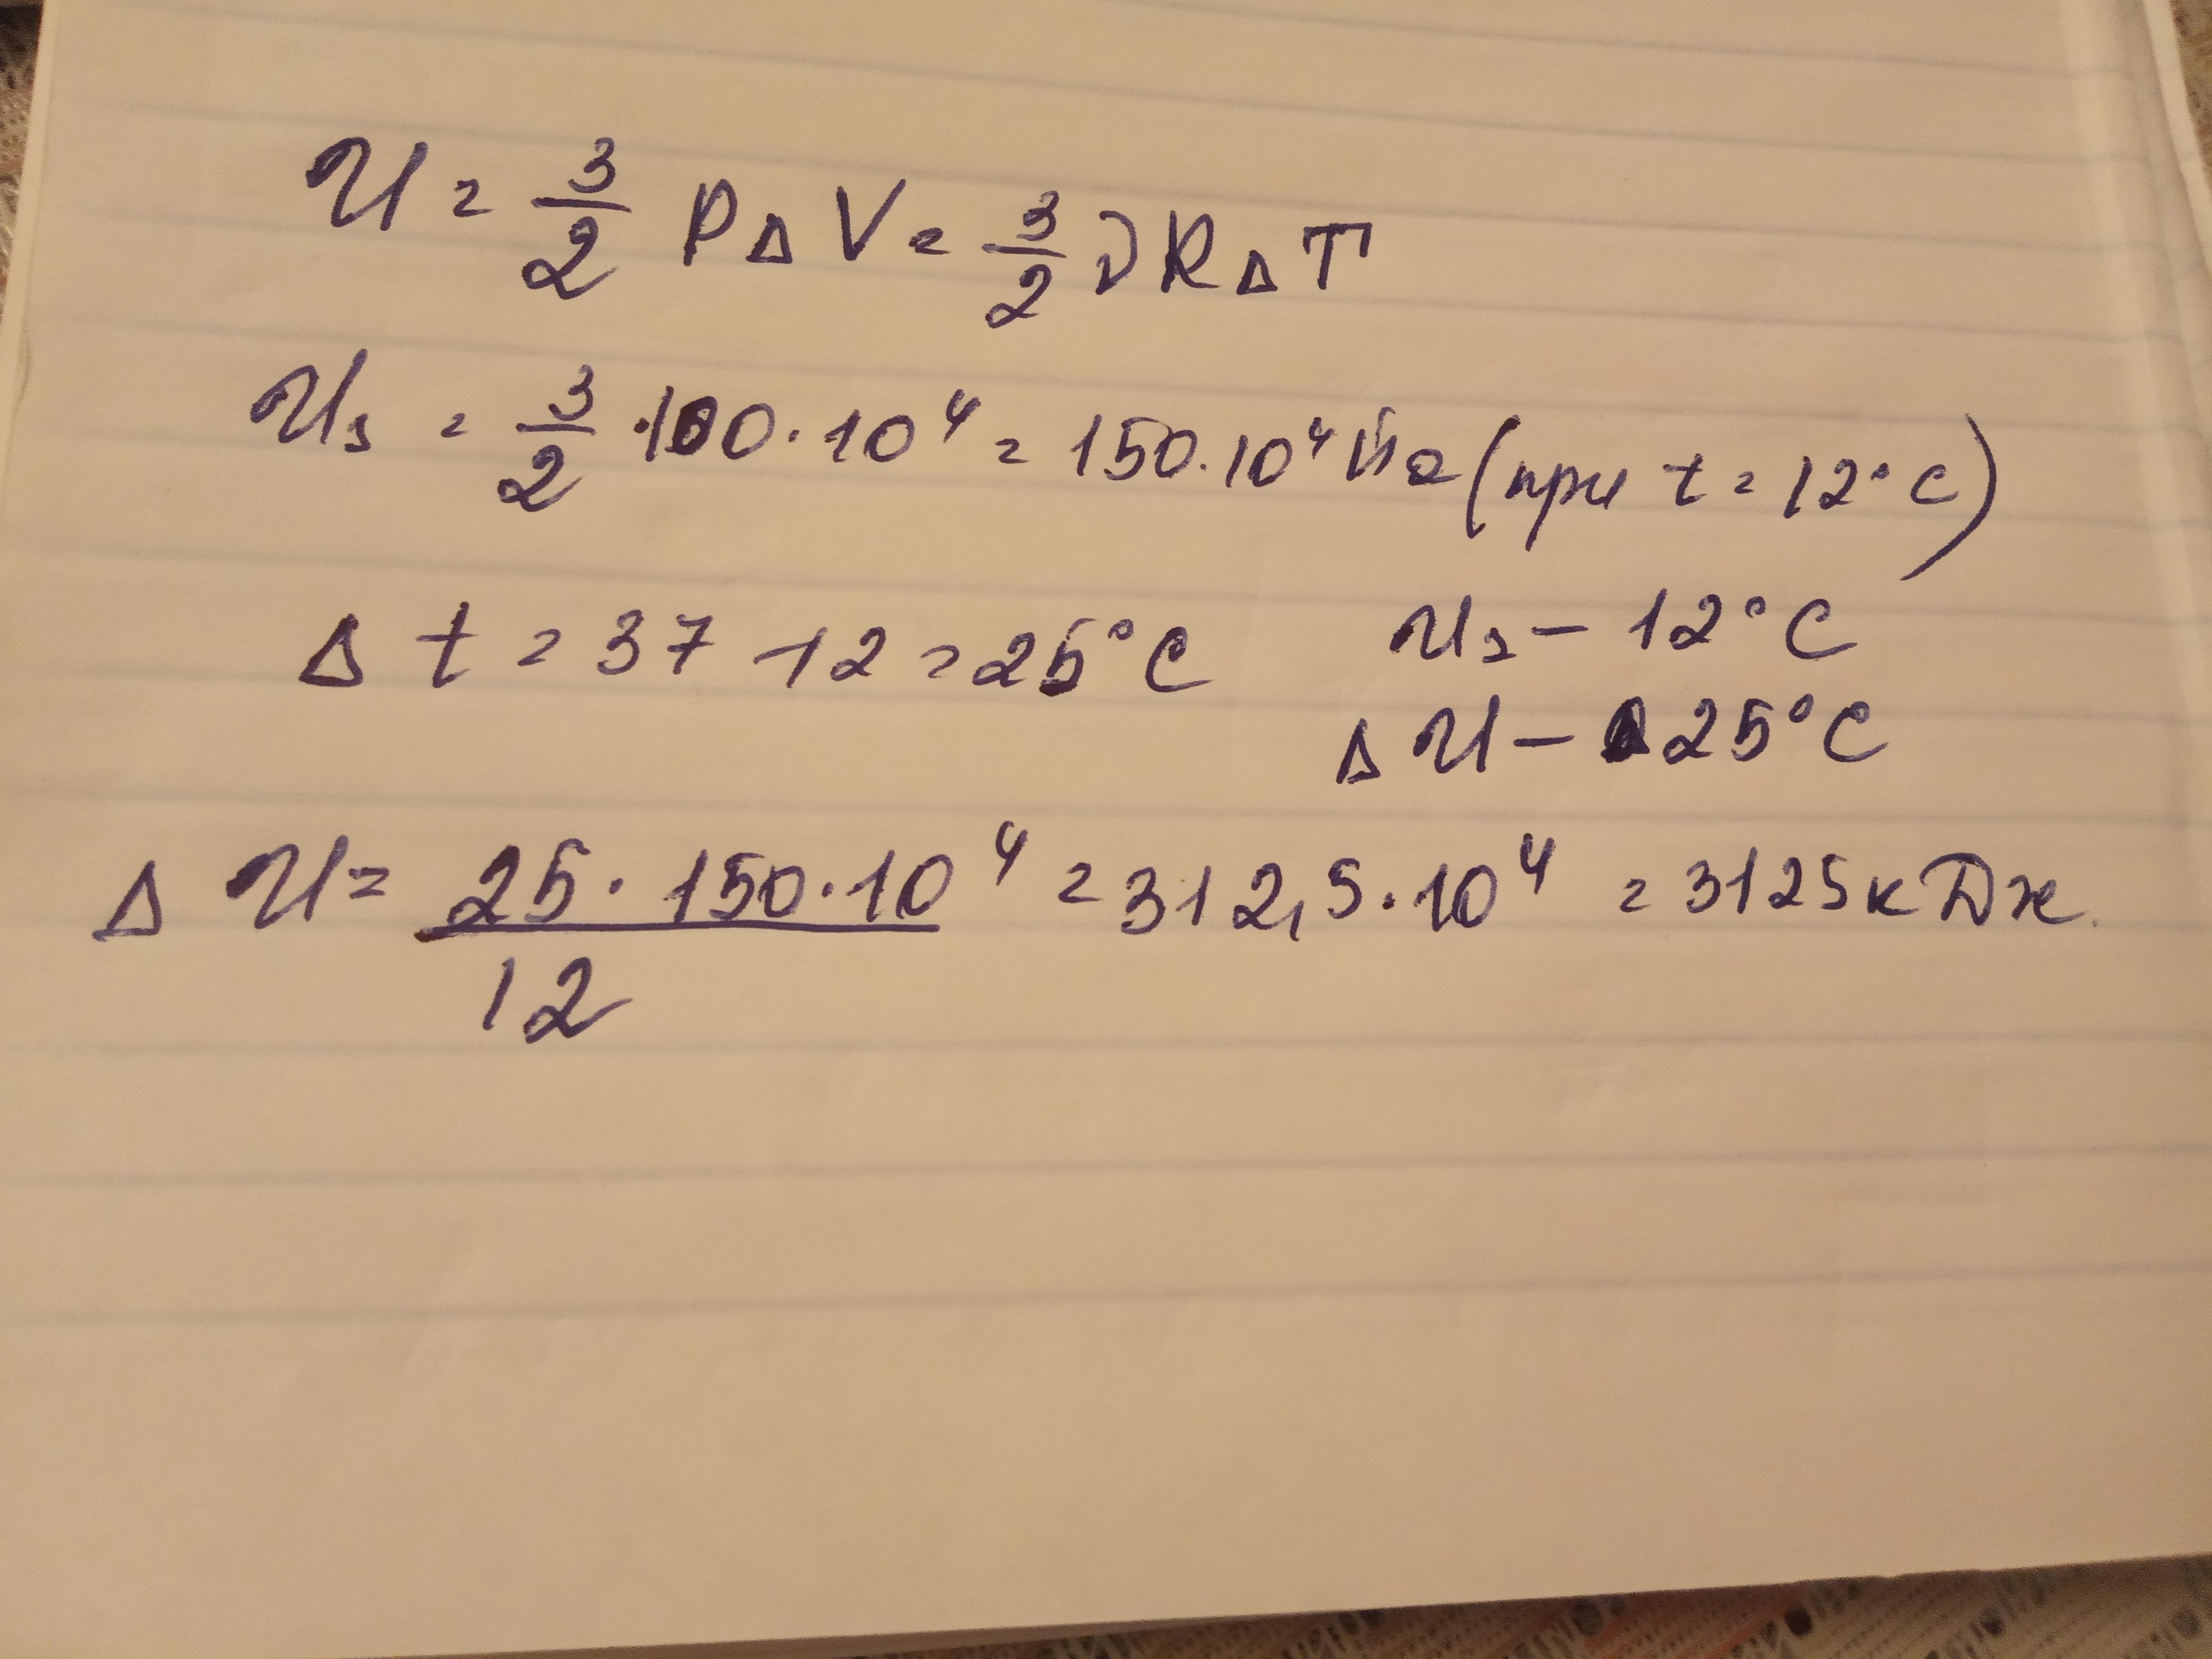 U = 3/2 PΔV = 3/2 νRΔT
U₁ = 3/2 · 100 · 10⁴ = 150 · 10⁴ Па (при t = 12°C)
Δt = 37 - 12 = 25°C
U₁ — 12°C
ΔU — 25°C
ΔU = 25 · 150 · 10⁴ / 12 = 312,5 · 10⁴ = 3125 кДж.